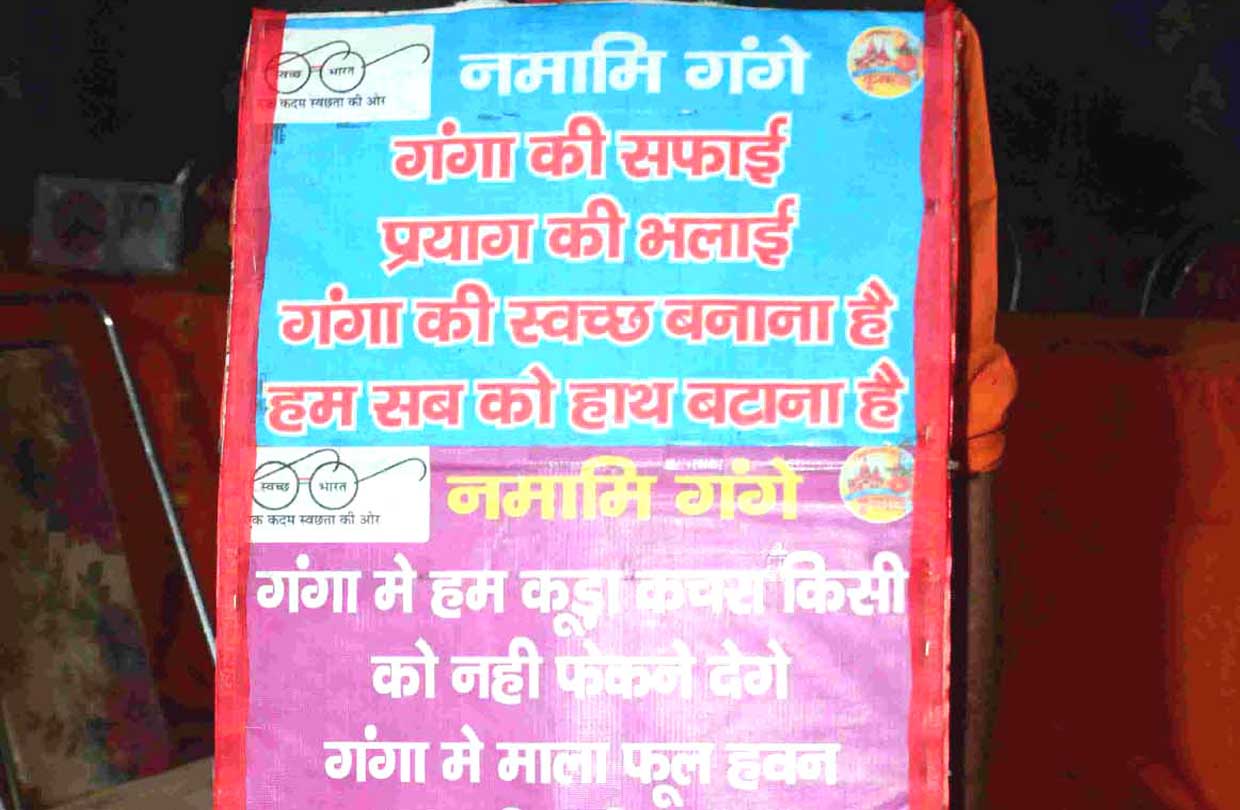 स्वच्छ भारत
एक कदम स्वछता की ओर
नमामि गंगे
गंगा की सफाई
प्रयाग की भलाई
गंगा की स्वच्छ बनाना है
हम सब को हाथ बटाना है
स्वच्छ भारत
एक कदम स्वछता की ओर
नमामि गंगे
गंगा मे हम कूड़ा कचरा किसी
को नही फेकने देगे
गंगा मे माला फूल हवन